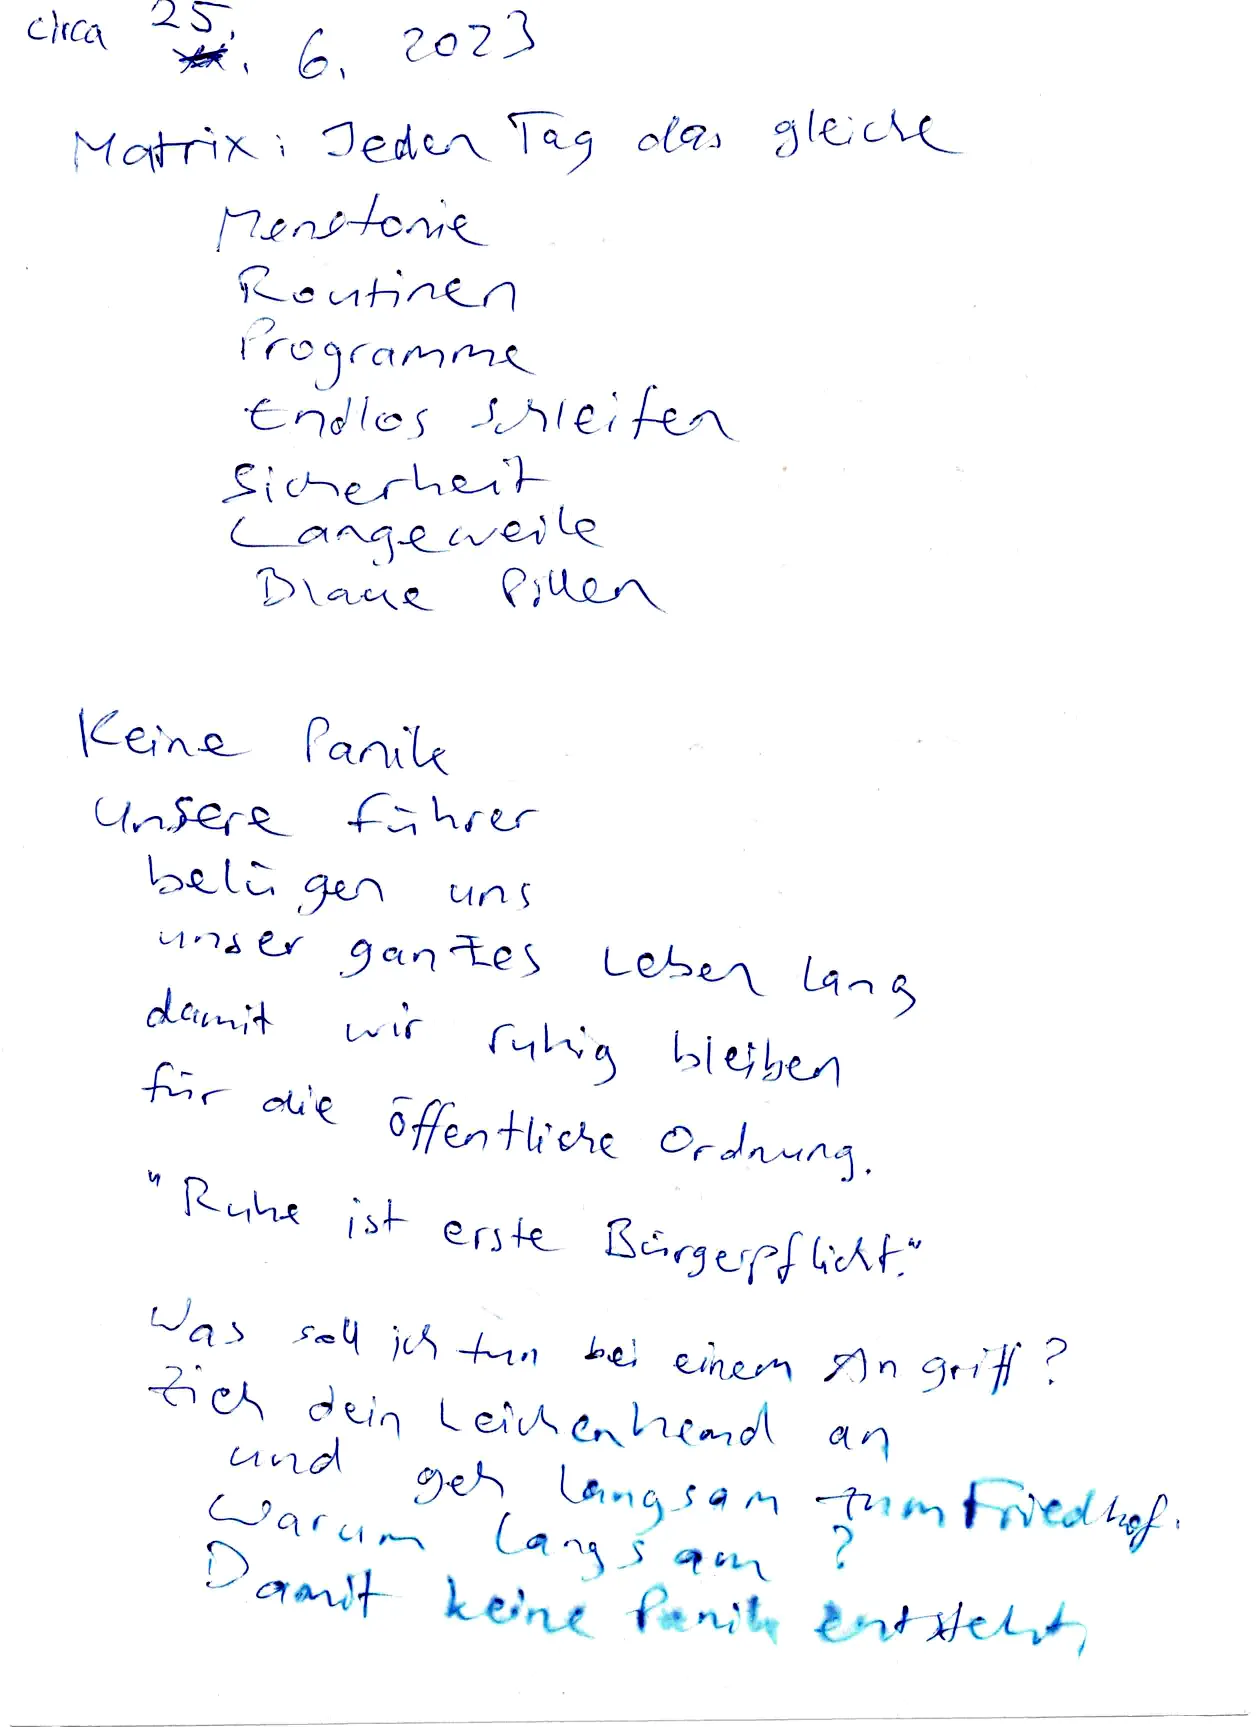 circa 25. 6. 2023
Matrix: Jeden Tag das gleiche
Monotonie
Routinen
Programme
Endlos schleifen
Sicherheit
Langeweile
Blaue Pillen
Keine Panik
unsere Führer
belügen uns
unser ganzes Leben lang
damit wir ruhig bleiben
für die öffentliche Ordnung.
"Ruhe ist erste Bürgerpflicht."
Was soll ich tun bei einem Angriff?
Zieh dein Leichenhemd an
und geh langsam zum Friedhof.
Warum langsam?
Damit keine Panik entsteht,